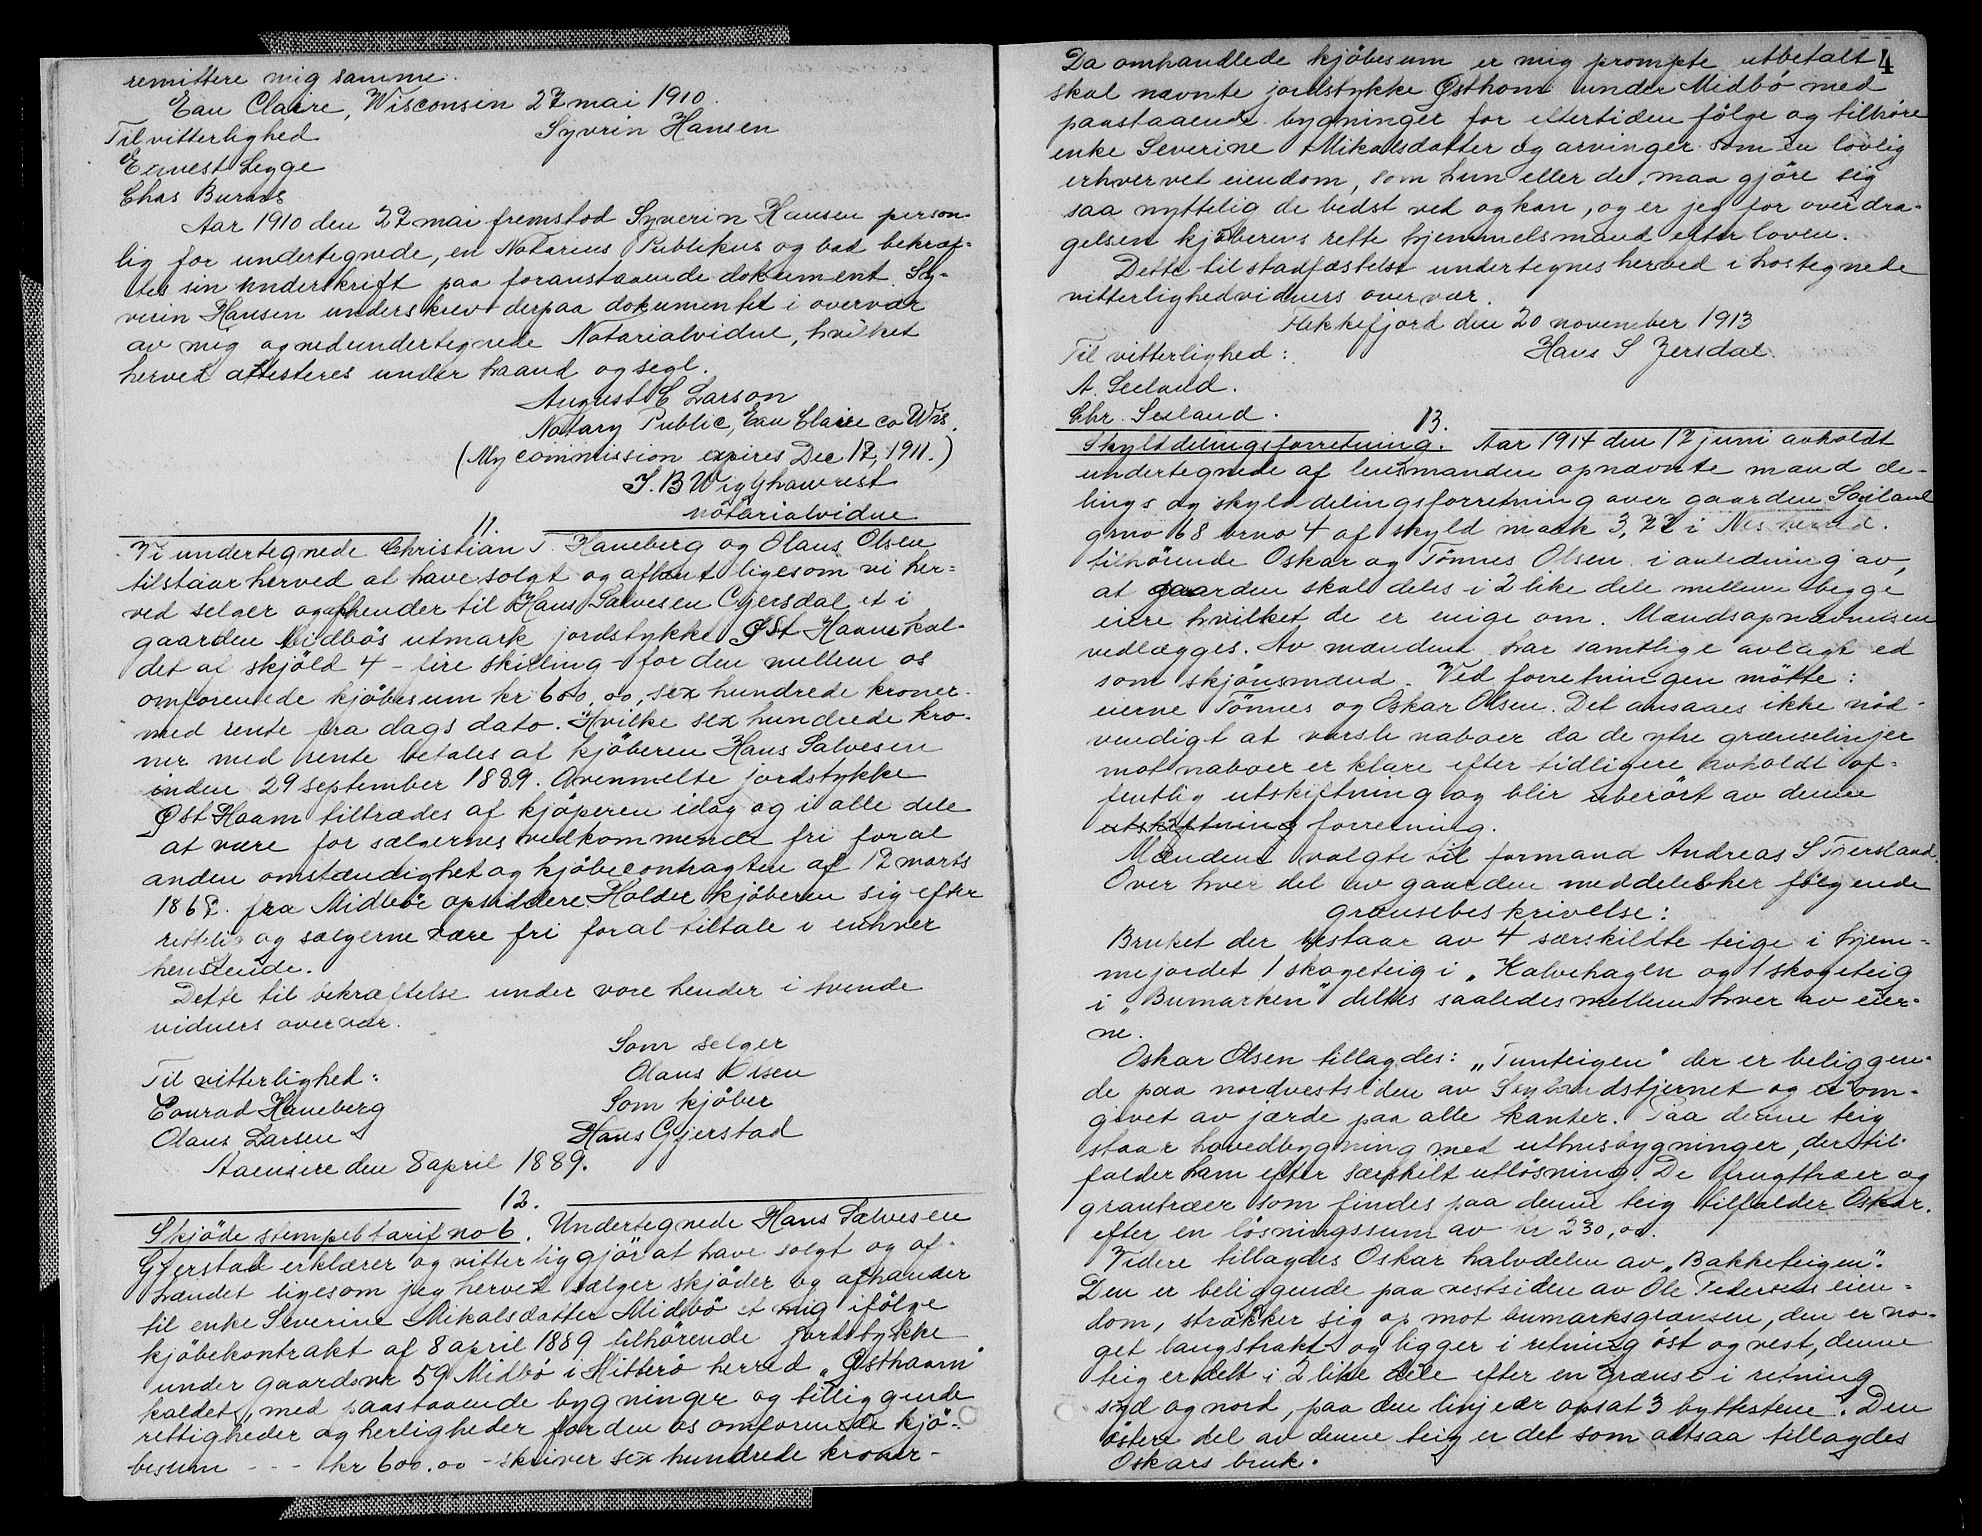 remittere mig samme.
Eau Claire, Wisconsin 27 mai 1910.
Til vitterlighed Syvrin Hansen
Ernest Legge
Chas Burns
Aar 1910 den 27 mai fremstod Syverin Hansen person-
lig for undertegnede, en Notarius Publikus og bad bekræf-
tes sin underskrift paa foranstaaende dokument. Sy-
verin Hansen underskrev derpaa dokumentet i overvær
av mig og nedundertegnede Notarialvidne, hvilket
herved attesteres under haand og segl.
August C Larson
Notary Public, Eau Claire co Wis.
(My commission expires Dec 17, 1911.)
J. B
notarialvidne
11.
Vi undertegnede Christian T. Haneberg og Olaus Olsen
tilstaar herved at have solgt og afhænt ligesom vi her=
ved selger og afhender til Hans Salvesen Gjersdal et i
gaarden Midbös utmark jordstykke Øst Haane kal-
det af skjöld 4 - fire skilling - for den mellem os
omforenede kjöbesum kr 600,00, sex hundrede kroner.
med rente fra dags dato. Hvilke sex hundrede kro-
ner med rente betales af kjöberen Hans Salvesen
inden 29 september 1889. Ovenmelte jordstykke
Øst Haam tiltrædes af kjöperen idag og i alle dele
at være for sælgernes vedkommende fri for al
anden omstændighet og kjöbecontragten af 12 marts
186 . fra Midbö opsiddere. Holder kjöberen sig efter
rettelig og sælgerne være fri for al tiltale i enhver
henseende.
Dette til bekræftelse under vore hender i tvende
vidners overvær.
Som selger
Til vitterlighed: Olaus Olsen
Conrad Haneberg Som kjöber
Olaus Larsen Hans Gjerstad
Aaensire den 8 april 1889.
12.
Skjöde stempeltarif no 6. Undertegnede Hans Salvesen
Gjerstad erklærer og vitterliggjör at have solgt og af-
hændet ligesom jeg herved sælger skjöder og afhænder
til enke Severine Mikalsdatter Midbö et mig ifölge
kjöbekontrakt af 8 april 1889 tilhörende jordstykke
under gaardsnr 59 Midbö i Hitterö herred „Østhaam"
kaldet, med paastaaende bygninger og tilliggende
rettigheder og herligheder for den os omforenede kjö-
besum - - - kr 600.00 - skriver sex hundrede kroner -
4
Da omhandlede kjöbesum er mig prompte utbetalt
skal nævnte jordstykke Østhom under Midbö med
paastaaende bygninger for eftertiden fölge og tilhöre
enke Severine Mikalsdatter og arvinger som en lovlig
erhvervet eiendom, som hun eller de maa gjöre sig
saa nyttelig de bedst ved og kan, og er jeg for overdra-
gelsen kjöberens rette hjemmelsmand efter loven.
Dette til stadfæstelse undertegnes herved i hostegnede
vitterlighedvidners overvær.
Flekkefjord den 20 november 1913
Til vitterlighed: Hans S Jersdal.
A. Seeland.
Chr. Seeland.
13.
Skylddelingsforretning. Aar 1914 den 17 juni avholdt
undertegnede af lensmanden opnævnte mænd de-
lings og skylddelingsforretning over gaarden
gnno 68 brno 4 af skyld mark 3,77 i Nes herred.
tilhörende Oskar og Tönnes Olsen i anledning av,
at gaarden skal deles i 2 like dele mellem begge
eiere hvilket de er enige om. Mændsopnævnelsen
vedlægges. Av mændene har samtlige avlagt ed
som skjönsmænd. Ved forretningen mötte:
eierne Tönnes og Oskar Olsen. Det ansaaes ikke nöd-
vendigt at varsle naboer da de ytre grænselinjer
mot naboer er klare efter tidligere avholdt of-
fentlig utskiftning og blir uberört av denne
utskiftning forretning.
Mændene valgte til formand Andreas S Tjersland.
Over hver del av gaarden meddeles her fölgende
grænsebeskrivelse:
Bruket der bestaar av 4 særskildte teige i hjem-
mejordet 1 skogteig i „Kalvehagen og 1 skogteig
i „Bumarken" deltes saaledes mellem hver av eier-
ne.
Oskar Olsen tillagdes: „Tunteigen" der er beliggen-
de paa nordvestsiden av og er om-
givet av jærde paa alle kanter. Paa denne teig
staar hovedbygning med uthusbygninger, der til-
falder ham efter særskilt utlösning. De frugttræer og
grantræer som findes paa denne teig tilfalder Oskar.
efter en lösningssum av kr 230,00.
Videre tillagdes Oskar halvdelen av „Bakketeigen".
Den er beliggende paa vestsiden av Ole Pedersens eien-
dom, strækker sig op mot bumarksgrænsen, den er no-
get langstrakt og ligger i retning öst og vest, denne
teig er delt i 2 like dele efter en grænse i retning
syd og nord, paa den linje er opsat 3 byttestene. Den
östere del av denne teig er det som altsaa tillagdes
Oskars bruk.